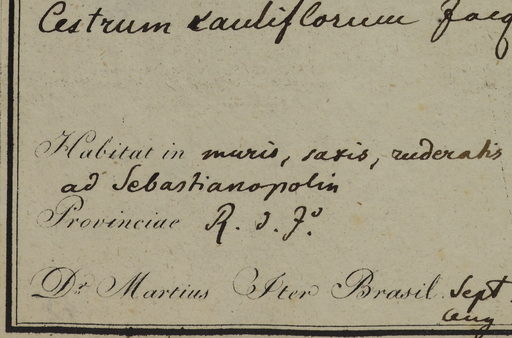 Cestrum cauliflorum Jacq
Habitat in muris, saxis, ruderatis
ad Sebastianopolin
Provinciae R. d. J.º
Dr. Martius Iter Brasil. Sept.
Aug